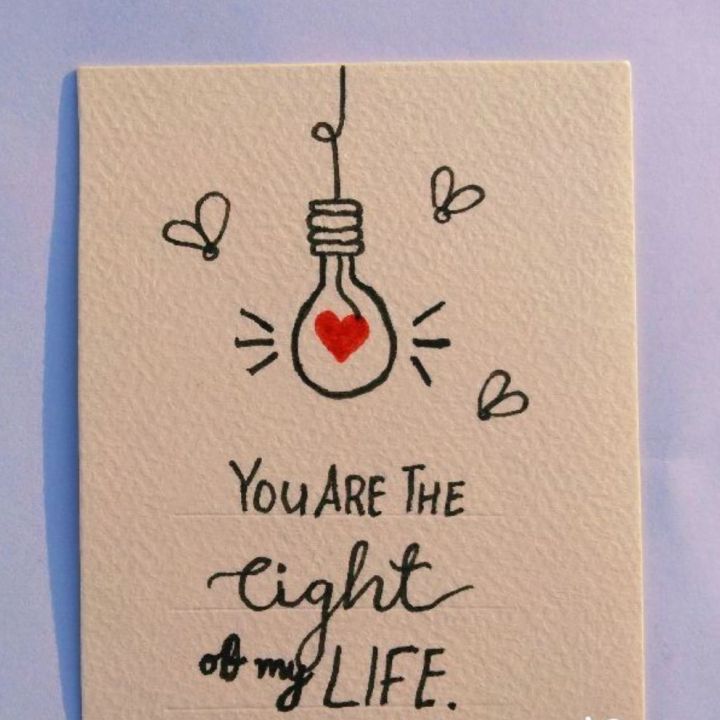 YOU ARE THE
Light
of my LIFE.